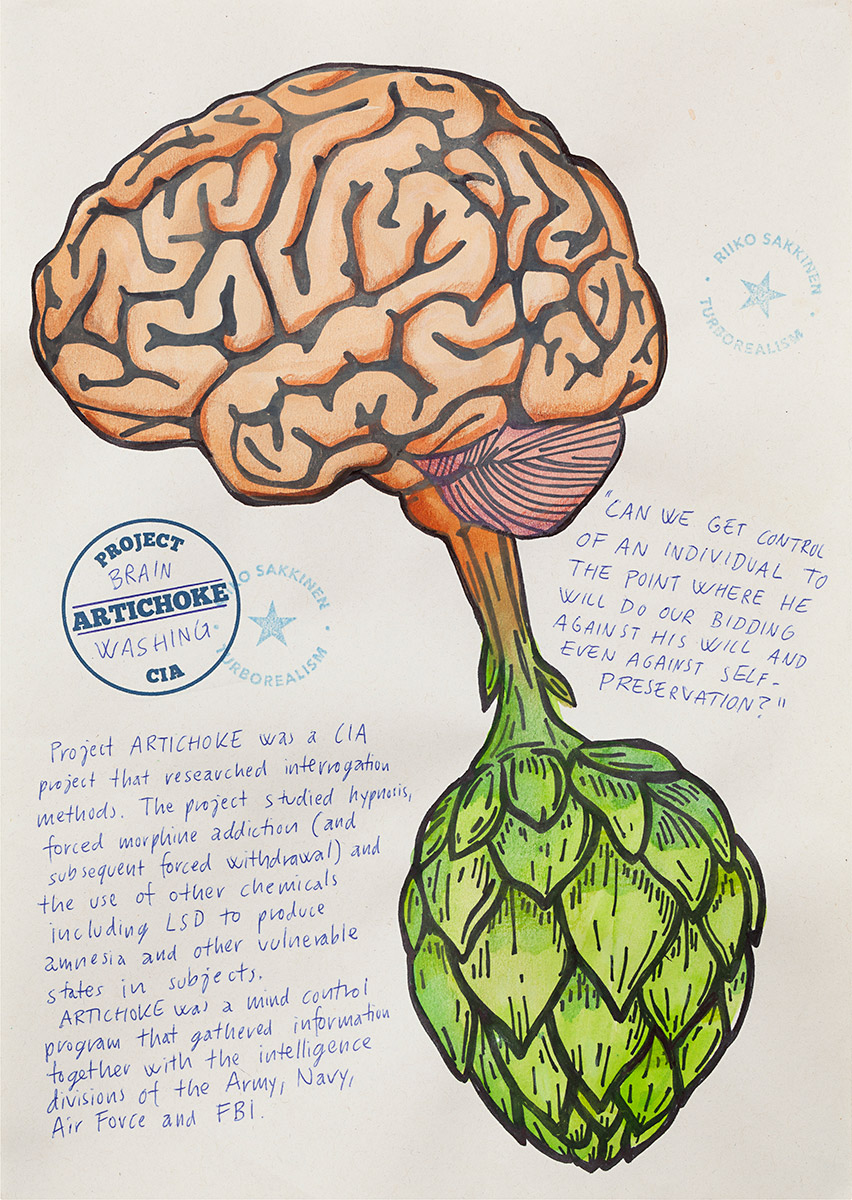 RIIKO SAKKINEN
TURBOREALISM
"CAN WE GET CONTROL
OF AN INDIVIDUAL TO
THE POINT WHERE HE
WILL DO OUR BIDDING
AGAINST HIS WILL AND
EVEN AGAINST SELF-
PRESERVATION?"
PROJECT
BRAIN
ARTICHOKE
WASHING
CIA
KO SAKKINEN
TURBOREALISM
Project ARTICHOKE was a CIA
project that researched interrogation
methods. The project studied hypnosis,
forced morphine addiction (and
subsequent forced withdrawal) and
the use of other chemicals
including LSD to produce
amnesia and other vulnerable
states in subjects.
ARTICHOKE was a mind control
program that gathered information
together with the intelligence
divisions of the Army, Navy,
Air Force and FBI.